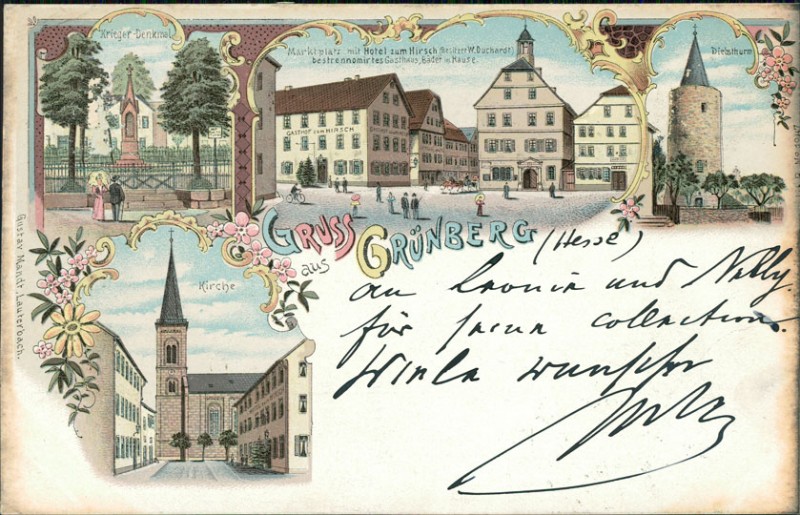 Krieger-Denkmal
Marktplatz mit Hotel zum Hirsch (Besitzer W. Duchardt)
bestrennomirtes Gasthaus, Bäder im Hause.
Diebsthurm
GASTHOF ZUM HIRSCH
GRUSS
aus
GRÜNBERG
(Hesse)
an Leonie und Nelly
für seine collection.
Viele wunsche
Kirche
Gustav Mandt, Lauterbach.